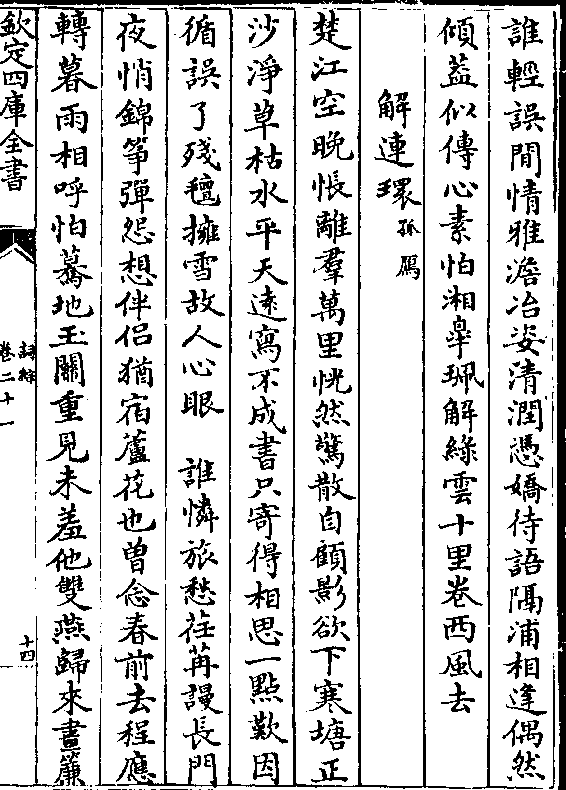 誰輕誤閒情雅澹冶姿清潤憑嬌待語隔浦相逢偶然
傾葢似傳心素怕湘臯珮解綠雲十里卷西風去
解連環孤鴈
楚江空晚悵離羣萬里恍然驚散自顧影欲下寒塘正
沙淨草枯水平天遠寫不成書只寄得相思一點歎因
循誤了殘氊擁雪故人心眼　誰憐旅愁荏苒謾長門
夜悄錦筝彈怨想伴侣猶宿蘆花也曽念春前去程應
轉暮雨相呼怕驀地玉關重見未羞他雙燕歸來畫簾
欽定四庫全書
詞綜
卷二十一
十四